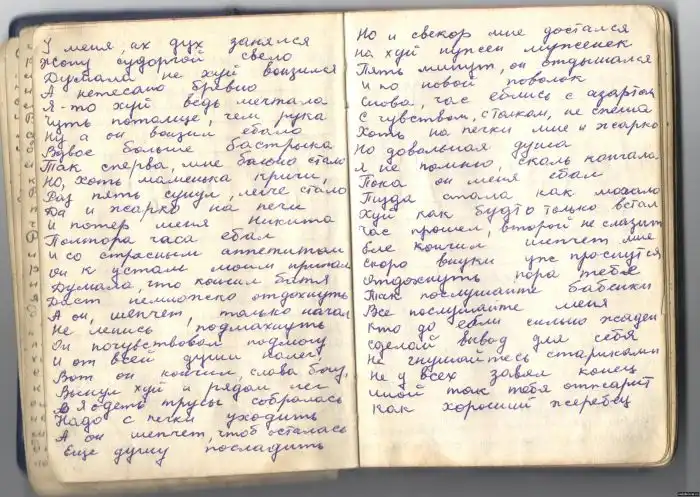 У меня, ах дух занялся
Жопу судоргой свело
Думала не хуй вонзился
А нетесано бревно
Я-то хуй ведь мечтала
Чуть потолще, чем рука
Ну а он вощил ебало
Вдвое больше бастрыка
Так сперва, мне больно стало
Но, хоть маменька кричи,
Раз пять сунул, легче стало
Да и жарко на печи
И потер меня Никита
Полтора часа ебал
И со страсным аппетитом
Он к устам моим припал
Думала, что кончил битя
Даст немножко отдохнуть
А он, шепчет, только начал
Не ленись, подмахнуть
Он почувствовал подмогу
И от всей души налег,
Вот он кончил, слава богу,
Вынул хуй и рядом лег
Я одеть трусы собралась
Надо с печки уходить
А он шепчет, чтоб осталась
Еще душу посладить
Но и свекор мне достался
На хуй нужен муженек
Пять минут, он отдышался
И по новой поволок
Снова, час еблись с азартом
С чувством, с толком, не спеша
Хоть на печки мне и жарко
Но довольная душа
Я не помню, сколь кончала
Пока он меня ебал
Пизда стала как мочало
Хуй как будто только встал
Час прошел, второй не слазит
Еле кончил шепчет мне
Скоро внуки уже проснутся
Отдохнуть пора тебе
Так послушайте бабенки
Все послушайте меня
Кто до ебли сильно жаден
Сделай вывод для себя
Не гнушайтесь стариками
Не у всех завял конец
Иной так тебя отжарит
Как хороший жеребец